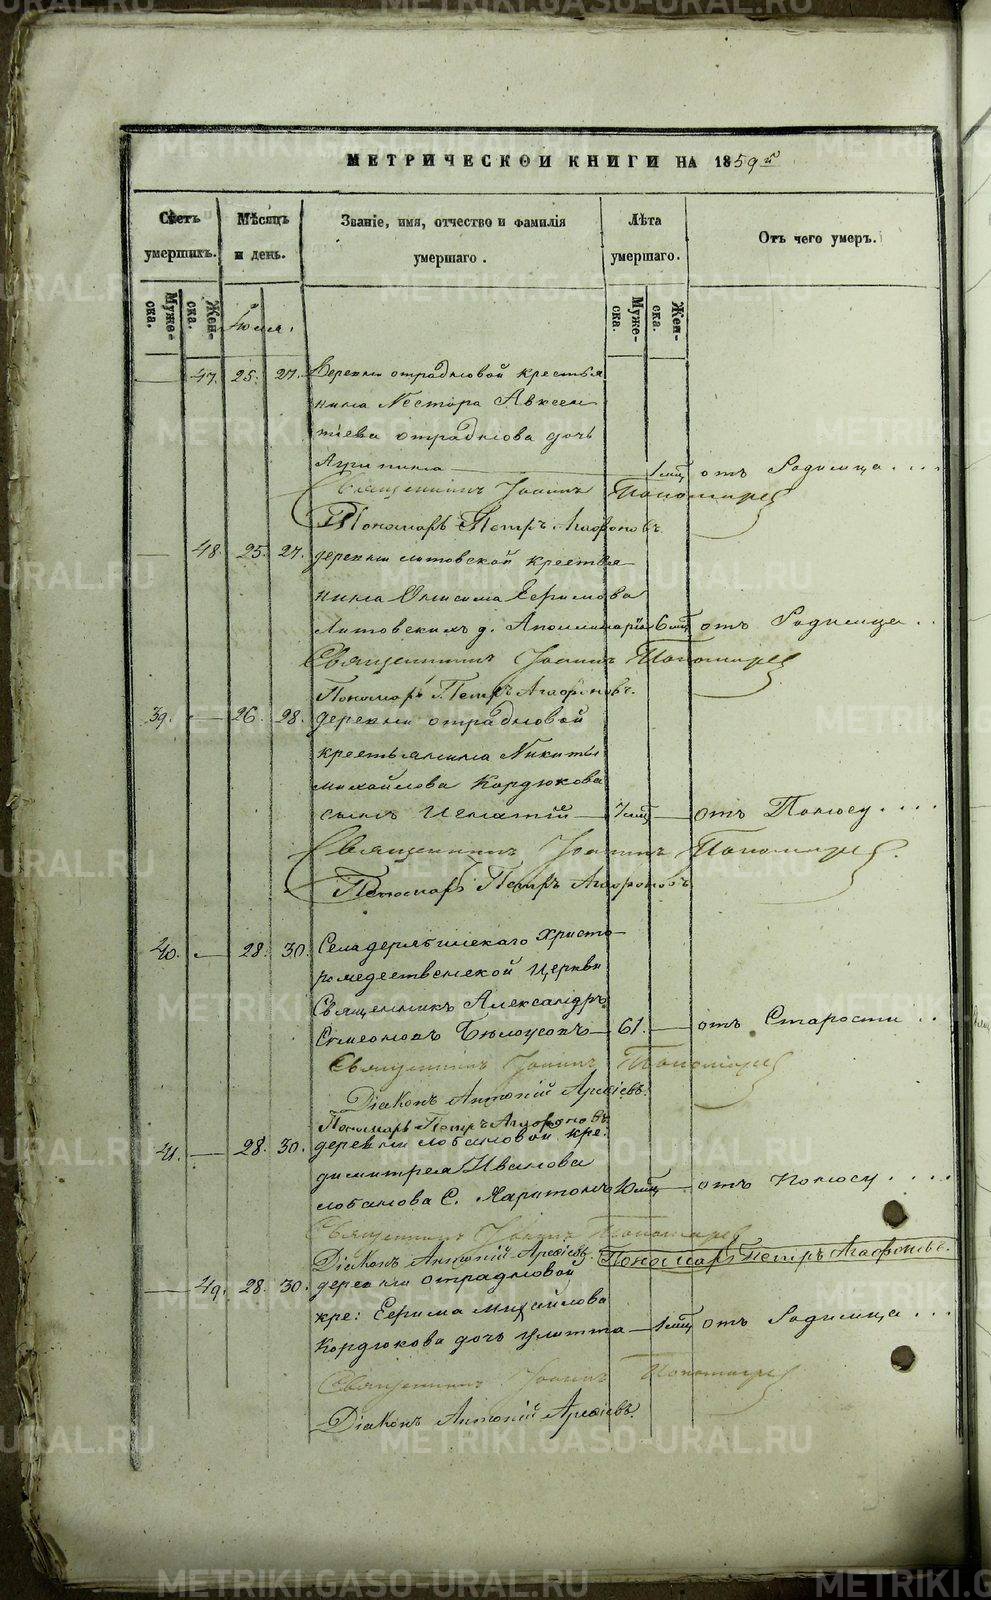 МЕТРИЧЕСКОЙ КНИГИ НА 1859й
Счетъ умершихъ.
Мѣсяцъ и день.
Званіе, имя, отчество и фамилія умершаго.
Лѣта умершаго.
Отъ чего умеръ.
Муже-ска.
Жен-ска.
Муже-ска.
Жен-ска.
Іюля.
47. 25. 27. Деревни отрадновой крестья
нина Нестора Авксен
тіева отраднова дочь
1 мц отъ Родимца
Священникъ Іоаннъ Пономаревъ
Пономарь Петръ Агафоновъ
48. 25. 27. деревни литовской крестья
нина Онисима Ефимова
Литовскихъ д. Апполинарія 6 мц отъ Родимца
Священникъ Іоаннъ Пономаревъ
Пономарь Петръ Агафоновъ.
39. 26. 28. деревни отрадновой
крестьянина Никиты
михайлова Кордюкова
сынъ Игнатій 1 мц отъ Поносу
Священникъ Іоаннъ Пономаревъ.
Пономарь Петръ Агафоновъ
40. 28. 30. Села Христо
рождественской Церкви
Священникъ Александръ
Симеоновъ Бѣлоусовъ 61. отъ Старости
Священникъ Іоаннъ Пономаревъ
Діаконъ Антоній
Пономарь Петръ Агафоновъ
41. 28. 30. деревни лобановой кре:
димитрея Иванова
лобанова С. Харитонъ 10 мц отъ Поносу
Священникъ Іоаннъ Пономаревъ
Діаконъ Антоній Пономарь Петръ Агафоновъ.
49. 28. 30. деревни отрадновой
кре: Ефима михайлова
Кордюкова дочь улитта 1 мц отъ Родимца
Священникъ Іоаннъ Пономаревъ
Діаконъ Антоній
METRIKI.GASO-URAL.RU